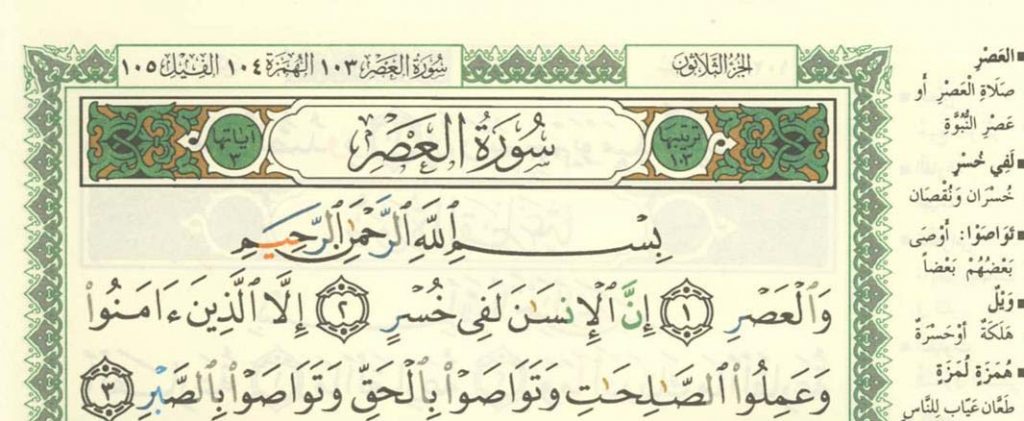 سُورَةُ العَصْر ١٠٣ الهُمَزَة ١٠٤ الفِيْل ١٠٥
الجُزْءُ الثَّلَاثُونَ
ترتيبها ١٠٣
سُورَةُ العَصْرِ
آياتها ٣
بِسْمِ ٱللَّهِ ٱلرَّحْمَٰنِ ٱلرَّحِيمِ
وَٱلْعَصْرِ ١ إِنَّ ٱلْإِنسَٰنَ لَفِى خُسْرٍ ٢ إِلَّا ٱلَّذِينَ ءَامَنُوا۟
وَعَمِلُوا۟ ٱلصَّٰلِحَٰتِ وَتَوَاصَوْا۟ بِٱلْحَقِّ وَتَوَاصَوْا۟ بِٱلصَّبْرِ ٣
■ العَصْرِ
صَلَاةِ الْعَصْرِ أَو
عَصْرِ النُّبُوَّةِ
■ لَفِي خُسْرٍ
خُسْرَان وَنُقْصَان
■ تَوَاصَوْا: أَوْصَى
بَعْضُهُمْ بَعْضاً
■ وَيْلٌ
هَلَكَةٌ أَوْحَسْرَةٌ
■ هُمَزَةٍ لُمَزَةٍ
طَعَّان عَيَّاب لِلنَّاسِ